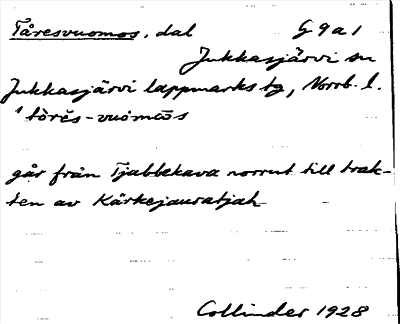 Tåresvuomos, dal G9a1
Jukkasjärvi sn
Jukkasjärvi lappmarks tg, Norrb. l.
'tòrĕs-vuómōs
går från Tjabbekava norrut till trak-
ten av Kärkejauratjah
Collinder 1928